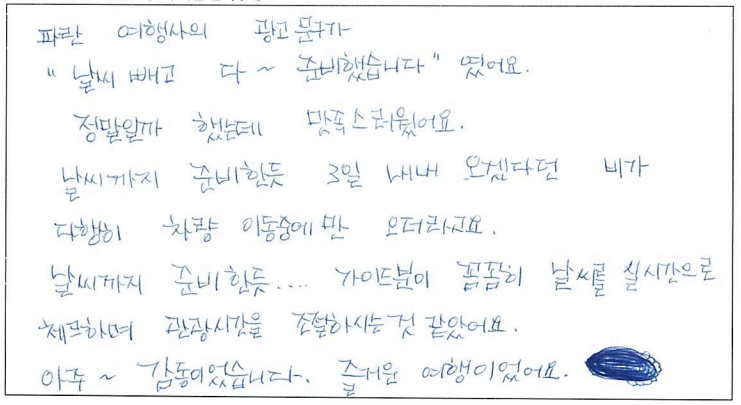 파란 여행사의 광고 문구가
" 날씨 빼고 다 ~ 준비했습니다 " 였어요.
정말일까 했는데 만족스러웠어요.
날씨까지 준비한듯 3일 내내 오겠다던 비가
다행히 차량 이동중에만 오더라고요.
날씨까지 준비한듯.... 가이드분이 꼼꼼히 날씨를 실시간으로
체크하며 관광시간을 조절하시는 것 같았어요.
아주 ~ 감동이었습니다. 즐거운 여행이었어요.